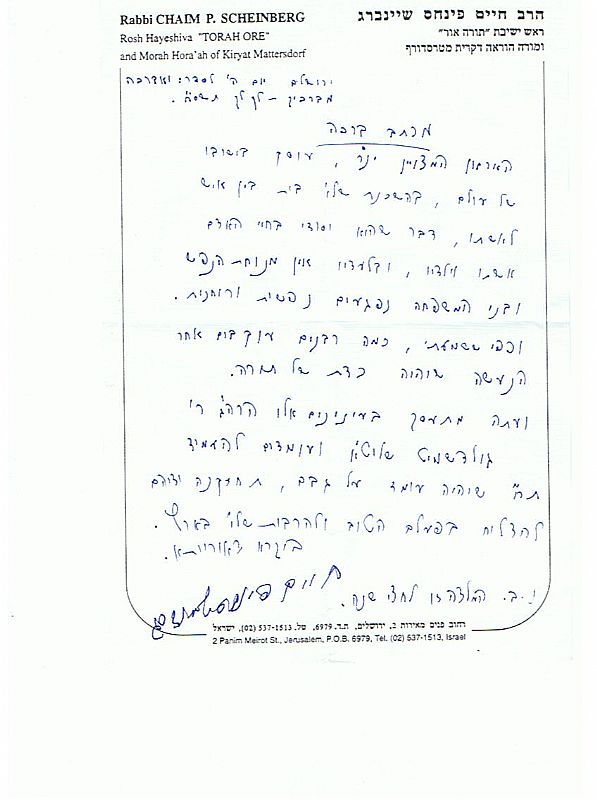 Rabbi CHAIM P. SCHEINBERG
Rosh Hayeshiva "TORAH ORE"
and Morah Hora'ah of Kiryat Mattersdorf
הרב חיים פינחס שיינברג
ראש ישיבת "תורה אור"
ומורה הוראה דקרית מטרסדורף
ירושלים יום ה' לסדר: ואברכה
מברכיך - לך לך תשס"ח.
מכתב ברכה
הארגון המצויין , עוסק בישובו
של עולם , בהשכנת שלו' בית בין איש
לאשתו , דבר שהוא יסודי בחיי האדם
אשתו וילדיו , ובלעדיו אין מנוחת הנפש
ובני המשפחה נפגעים נפשית ורוחנית.
וכפי ששמעתי , כמה רבנים עוקבים אחר
הנעשה שיהיה כדת של תורה.
ועתה מתעסק בענינים אלו הרה"ג ר'
גולדשמיט שליט"א ועומדים להעמיד
ת"ח שיהיה עומד על גבם , תחזקנה ידיהם
להצליח בפעלם הטוב ולהרבות שלו' בארץ.
ביקרא דאורייתא.
נ.ב. המלצה זו לחצי שנה.
חיים פינחס שיינברג
רחוב פנים מאירות 2, ירושלים, ת.ד. 6979, טל. 537-1513 (02), ישראל
2 Panim Meirot St., Jerusalem, P.O.B. 6979, Tel. (02) 537-1513, Israel